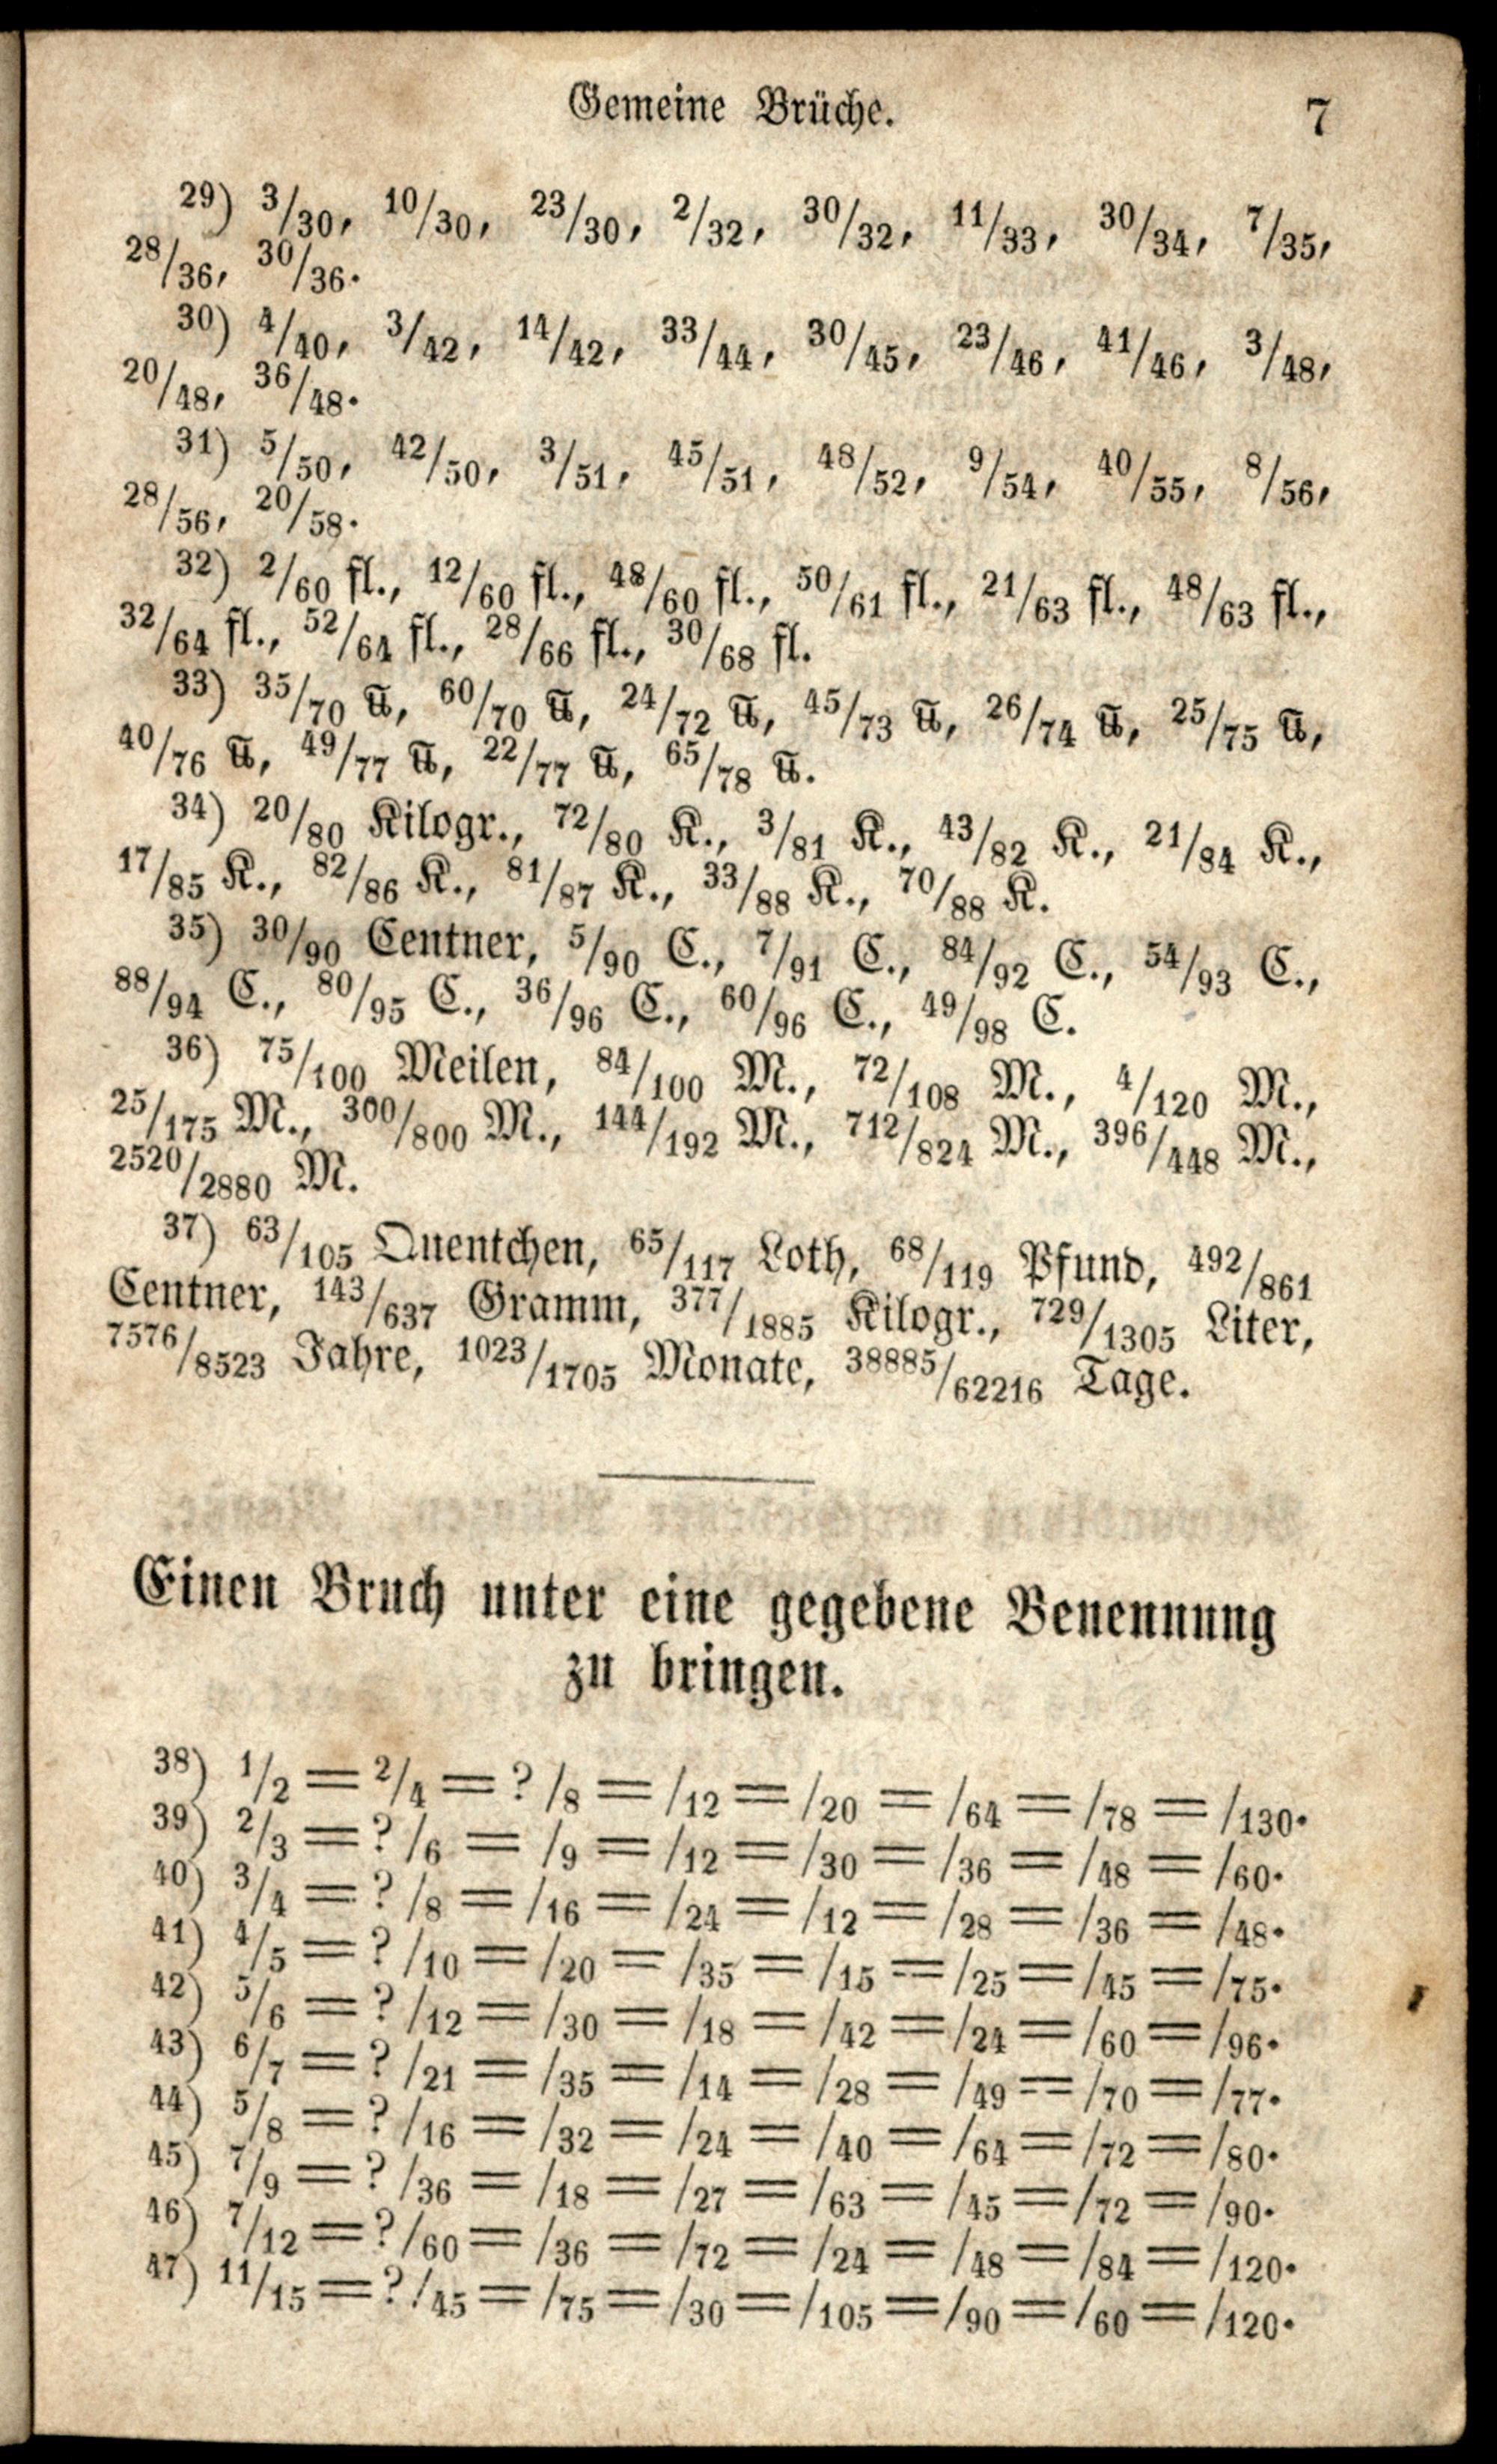 Gemeine Brüche. 7
29) 3/30, 10/30, 23/30, 2/32, 30/32, 11/33, 30/34, 7/35,
28/36, 30/36.
30) 4/40, 3/42, 14/42, 33/44, 30/45, 23/46, 41/46, 3/48,
20/48, 36/48.
31) 5/50, 42/50, 3/51, 45/51, 48/52, 9/54, 40/55, 8/56,
28/56, 20/58.
32) 2/60 fl., 12/60 fl., 48/60 fl., 50/61 fl., 21/63 fl., 48/63 fl.,
32/64 fl., 52/64 fl., 28/66 fl., 30/68 fl.
33) 35/70 ℔, 60/70 ℔, 24/72 ℔, 45/73 ℔, 26/74 ℔, 25/75 ℔,
40/76 ℔, 49/77 ℔, 22/77 ℔, 65/78 ℔.
34) 20/80 Kilogr., 72/80 K., 3/81 K., 43/82 K., 21/84 K.,
17/85 K., 82/86 K., 81/87 K., 33/88 K., 70/88 K.
35) 30/90 Centner, 5/90 C., 7/91 C., 84/92 C., 54/93 C.,
88/94 C., 80/95 C., 36/96 C., 60/96 C., 49/98 C.
36) 75/100 Meilen, 84/100 M., 72/108 M., 4/120 M.,
25/175 M., 300/800 M., 144/192 M., 712/824 M., 396/448 M.,
2520/2880 M.
37) 63/105 Quentchen, 65/117 Loth, 68/119 Pfund, 492/861
Centner, 143/637 Gramm, 377/1885 Kilogr., 729/1305 Liter,
7576/8523 Jahre, 1023/1705 Monate, 38885/62216 Tage.
Einen Bruch unter eine gegebene Benennung
zu bringen.
38) 1/2 = 2/4 = ? /8 = /12 = /20 = /64 = /78 = /130.
39) 2/3 = ? /6 = /9 = /12 = /30 = /36 = /48 = /60.
40) 3/4 = ? /8 = /16 = /24 = /12 = /28 = /36 = /48.
41) 4/5 = ? /10 = /20 = /35 = /15 = /25 = /45 = /75.
42) 5/6 = ? /12 = /30 = /18 = /42 = /24 = /60 = /96.
43) 6/7 = ? /21 = /35 = /14 = /28 = /49 = /70 = /77.
44) 5/8 = ? /16 = /32 = /24 = /40 = /64 = /72 = /80.
45) 7/9 = ? /36 = /18 = /27 = /63 = /45 = /72 = /90.
46) 7/12 = ? /60 = /36 = /72 = /24 = /48 = /84 = /120.
47) 11/15 = ? /45 = /75 = /30 = /105 = /90 = /60 = /120.